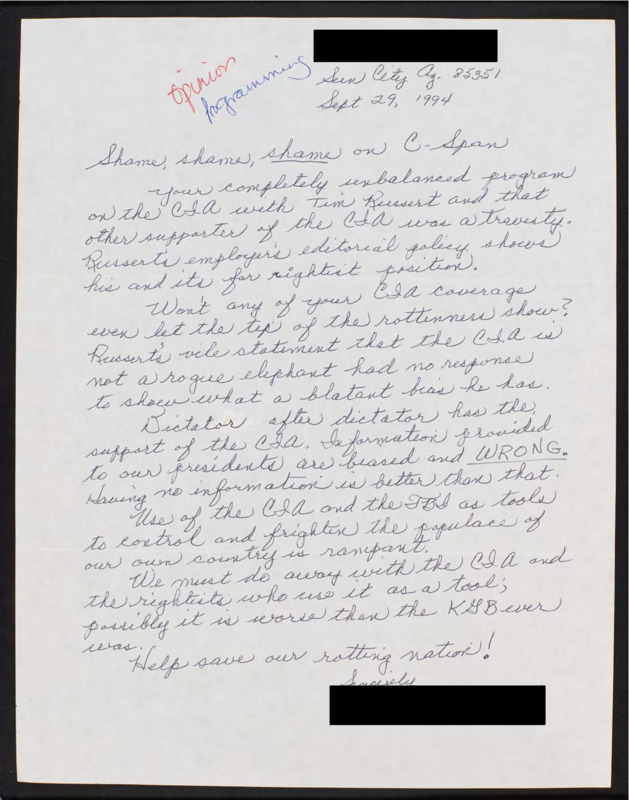 opinion
programming
Sun City Az. 85351
Sept 29, 1994
Shame, shame, shame on C-Span
Your completely unbalanced program
on the CIA with Tim Russert and that
other supporter of the CIA was a travesty.
Russert's employer's editorial policy shows
his and its far rightist position.
Won't any of your CIA coverage
even let the tip of the rottenness show?
Russert's vile statement that the CIA is
not a rogue elephant had no response
to show what a blatant bias he has.
Dictator after dictator has the
support of the CIA. Information provided
to our presidents are biased and WRONG.
Having no information is better than that.
Use of the CIA and the FBI as tools
to control and frighten the populace of
our own country is rampant.
We must do away with the CIA and
the rightists who use it as a tool;
possibly it is worse than the KGB ever
was.
Help save our rotting nation!
Sincerely